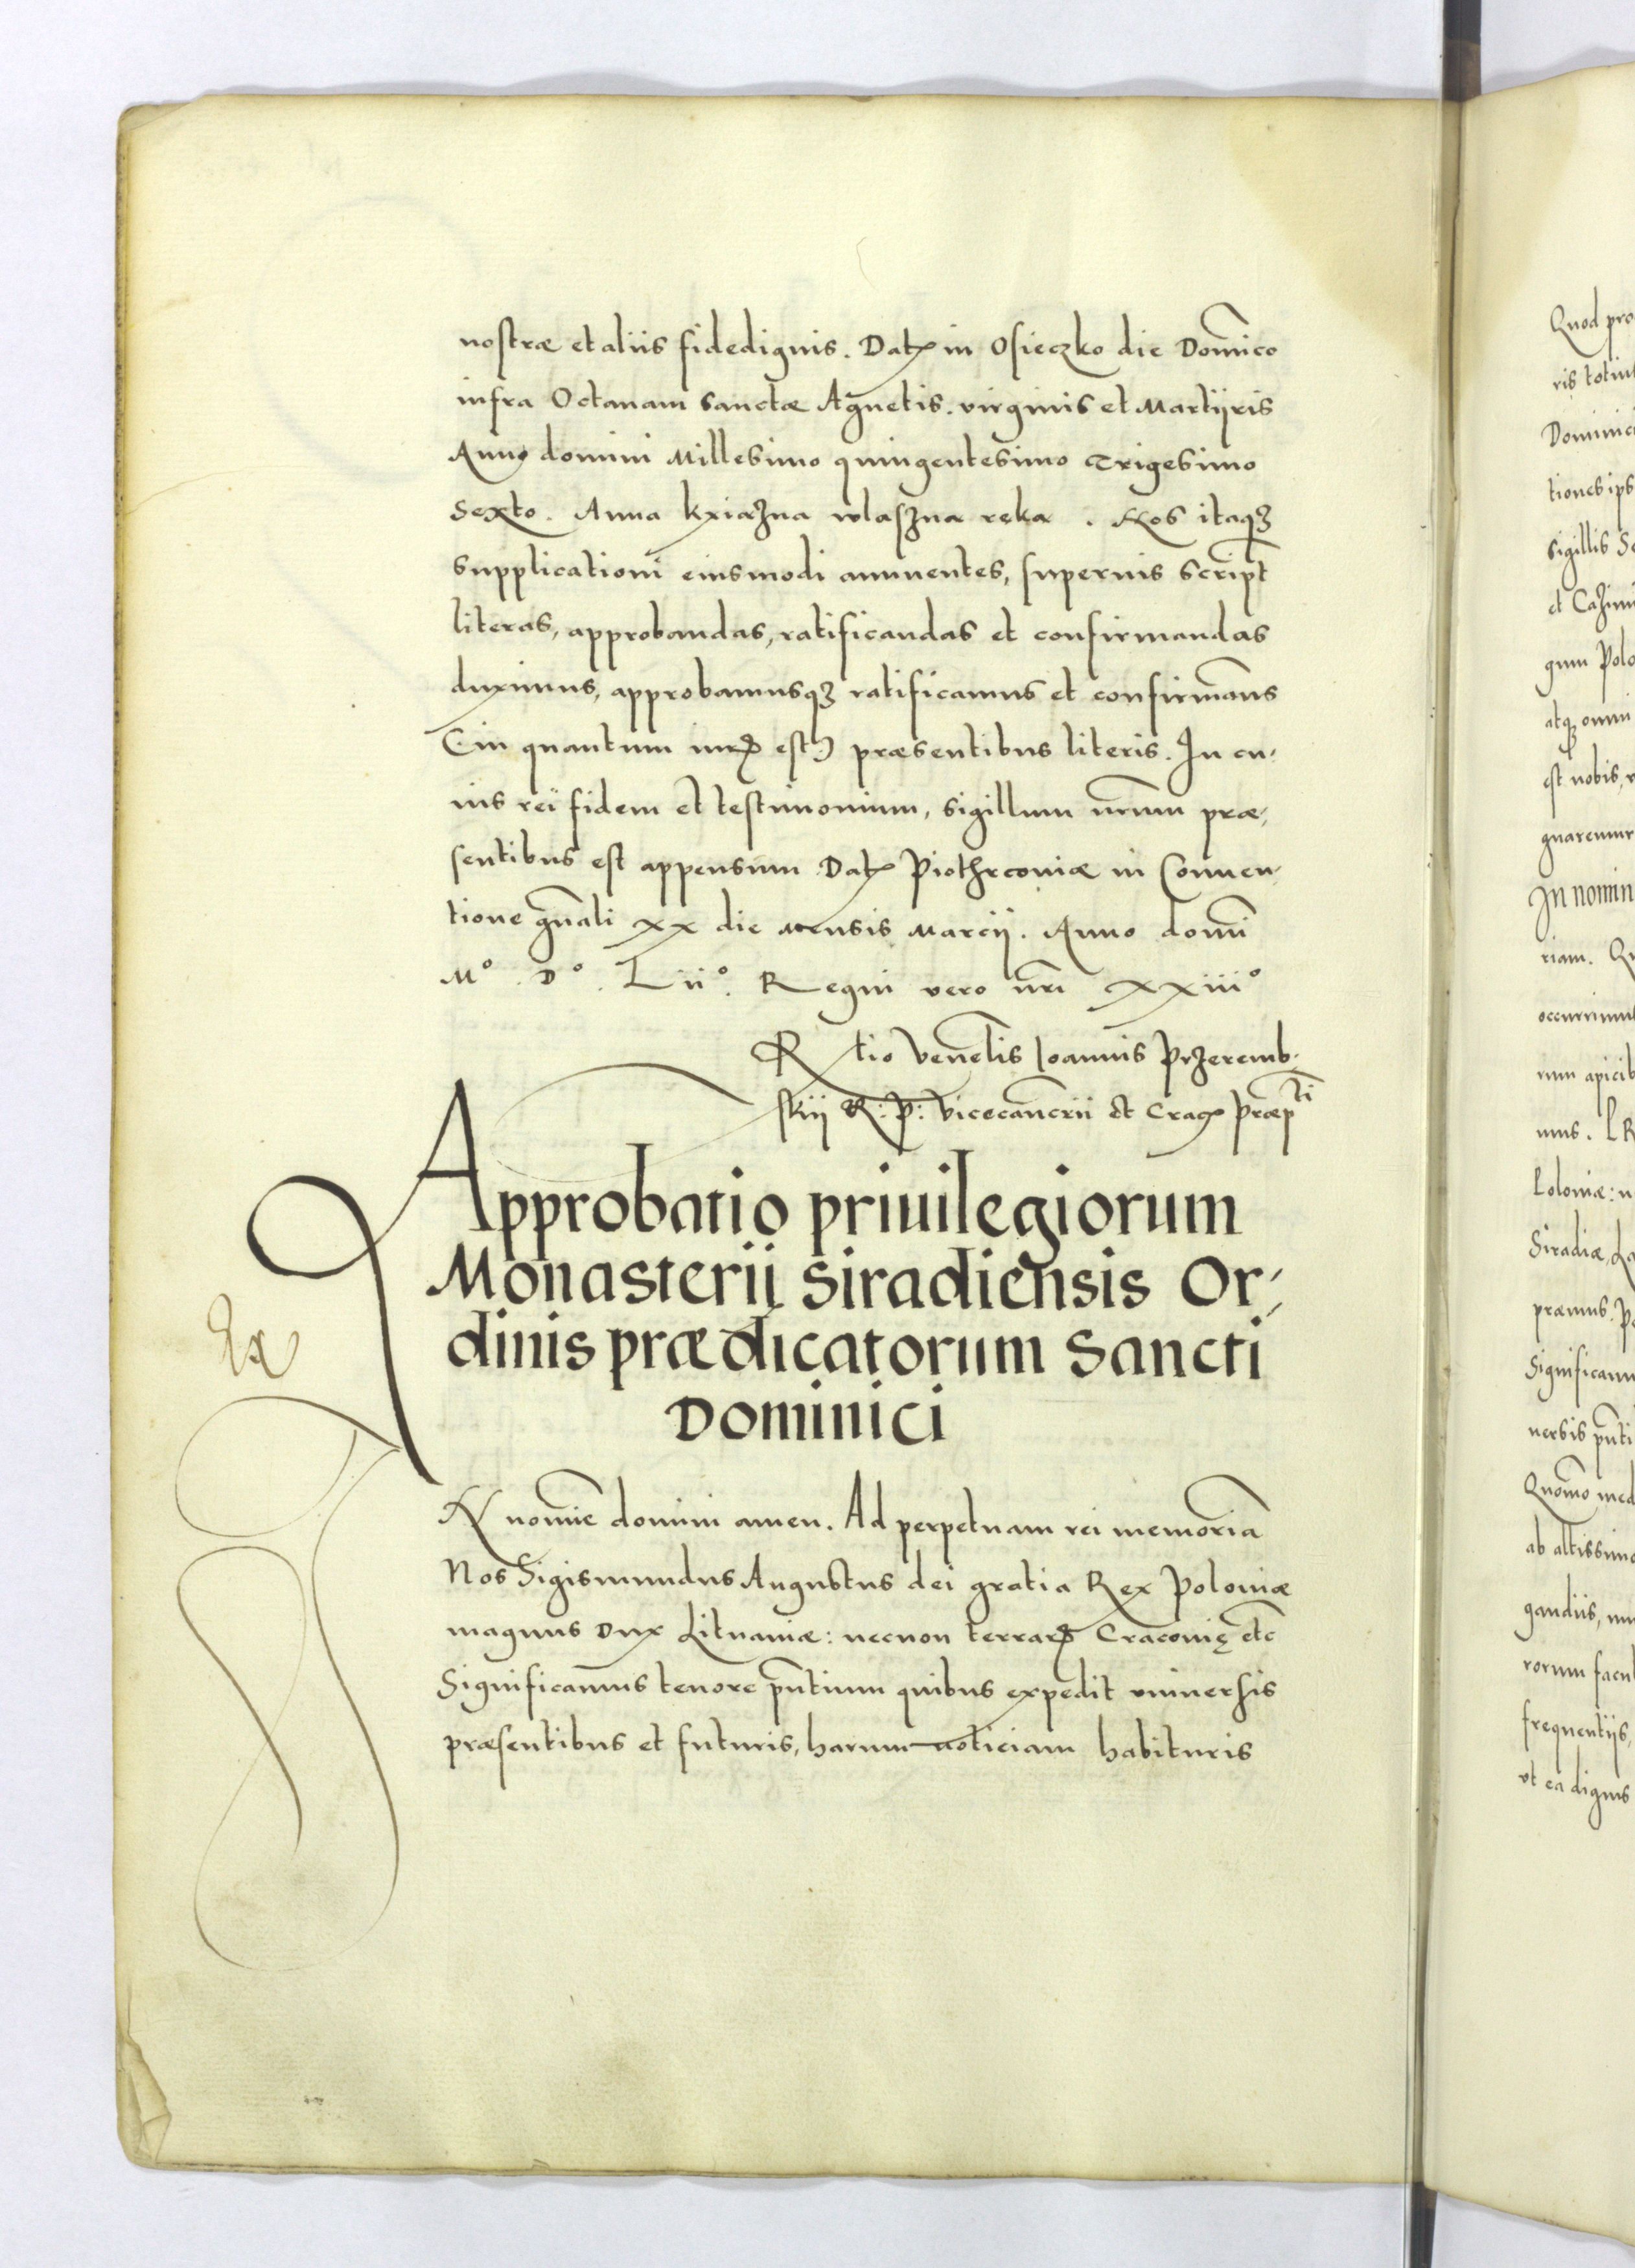 nostræ et aliis fidedignis. Datꝫ in Osieczko die Domīco
infra Octauam sanctæ Agnetis. virginis et Martijris
Anno domini Millesimo quingentesimo Trigesimo
Sexto. Anna kxiażna wlasżna ręka. Nos itaqꝫ
supplicationi eiusmodi annuentes, supernis script
literas, approbandas, ratificandas et confirmandas
duximus, approbamusqꝫ ratificamus et confirmās
(in quantum iurꝭ est) præsentibus literis. In cu-
ius rei fidem et testimonium, sigillum nr̄um præ-
sentibus est appensum Datꝫ Piothrcouiæ in Conuen-
tione gn̄ali xx die mensis Marcij. Anno domī
Mº. Dº. Liiº. Regni vero nr̄i xxiiiº
R tio Venēlis Ioannis Przeremb-
skij R: P: Vicecancrii et Cracꝫ præpti
Approbatio priuilegiorum
Monasterij Siradiensis Or-
dinis prædicatorum Sancti
Dominici
Ex
IN nomīe domini amen. Ad perpetuam rei memoriā
Nos Sigismundus Augustus dei gratia Rex Poloniæ
magnus Dux Lituaniæ: necnon terrarꝭ Cracouię etc
Significamus tenore pn̄tium quibus expedit vniuersis
præsentibus et futuris, harum noticiam habituris
Quod pro
ris totius
Dominici
tiones ips
sigillis
et Cazim
gum Polo
atqꝫ omni
est nobis,
gnaremur
In nomin
riam.
occurrimus
rum apicib
mus.
Poloniæ:
Siradiæ,
præmus.
Significam
uersis pn̄ti
Quomo med
ab altissimo
gandiis,
rorum facul
frequentijs,
vt ea dignis